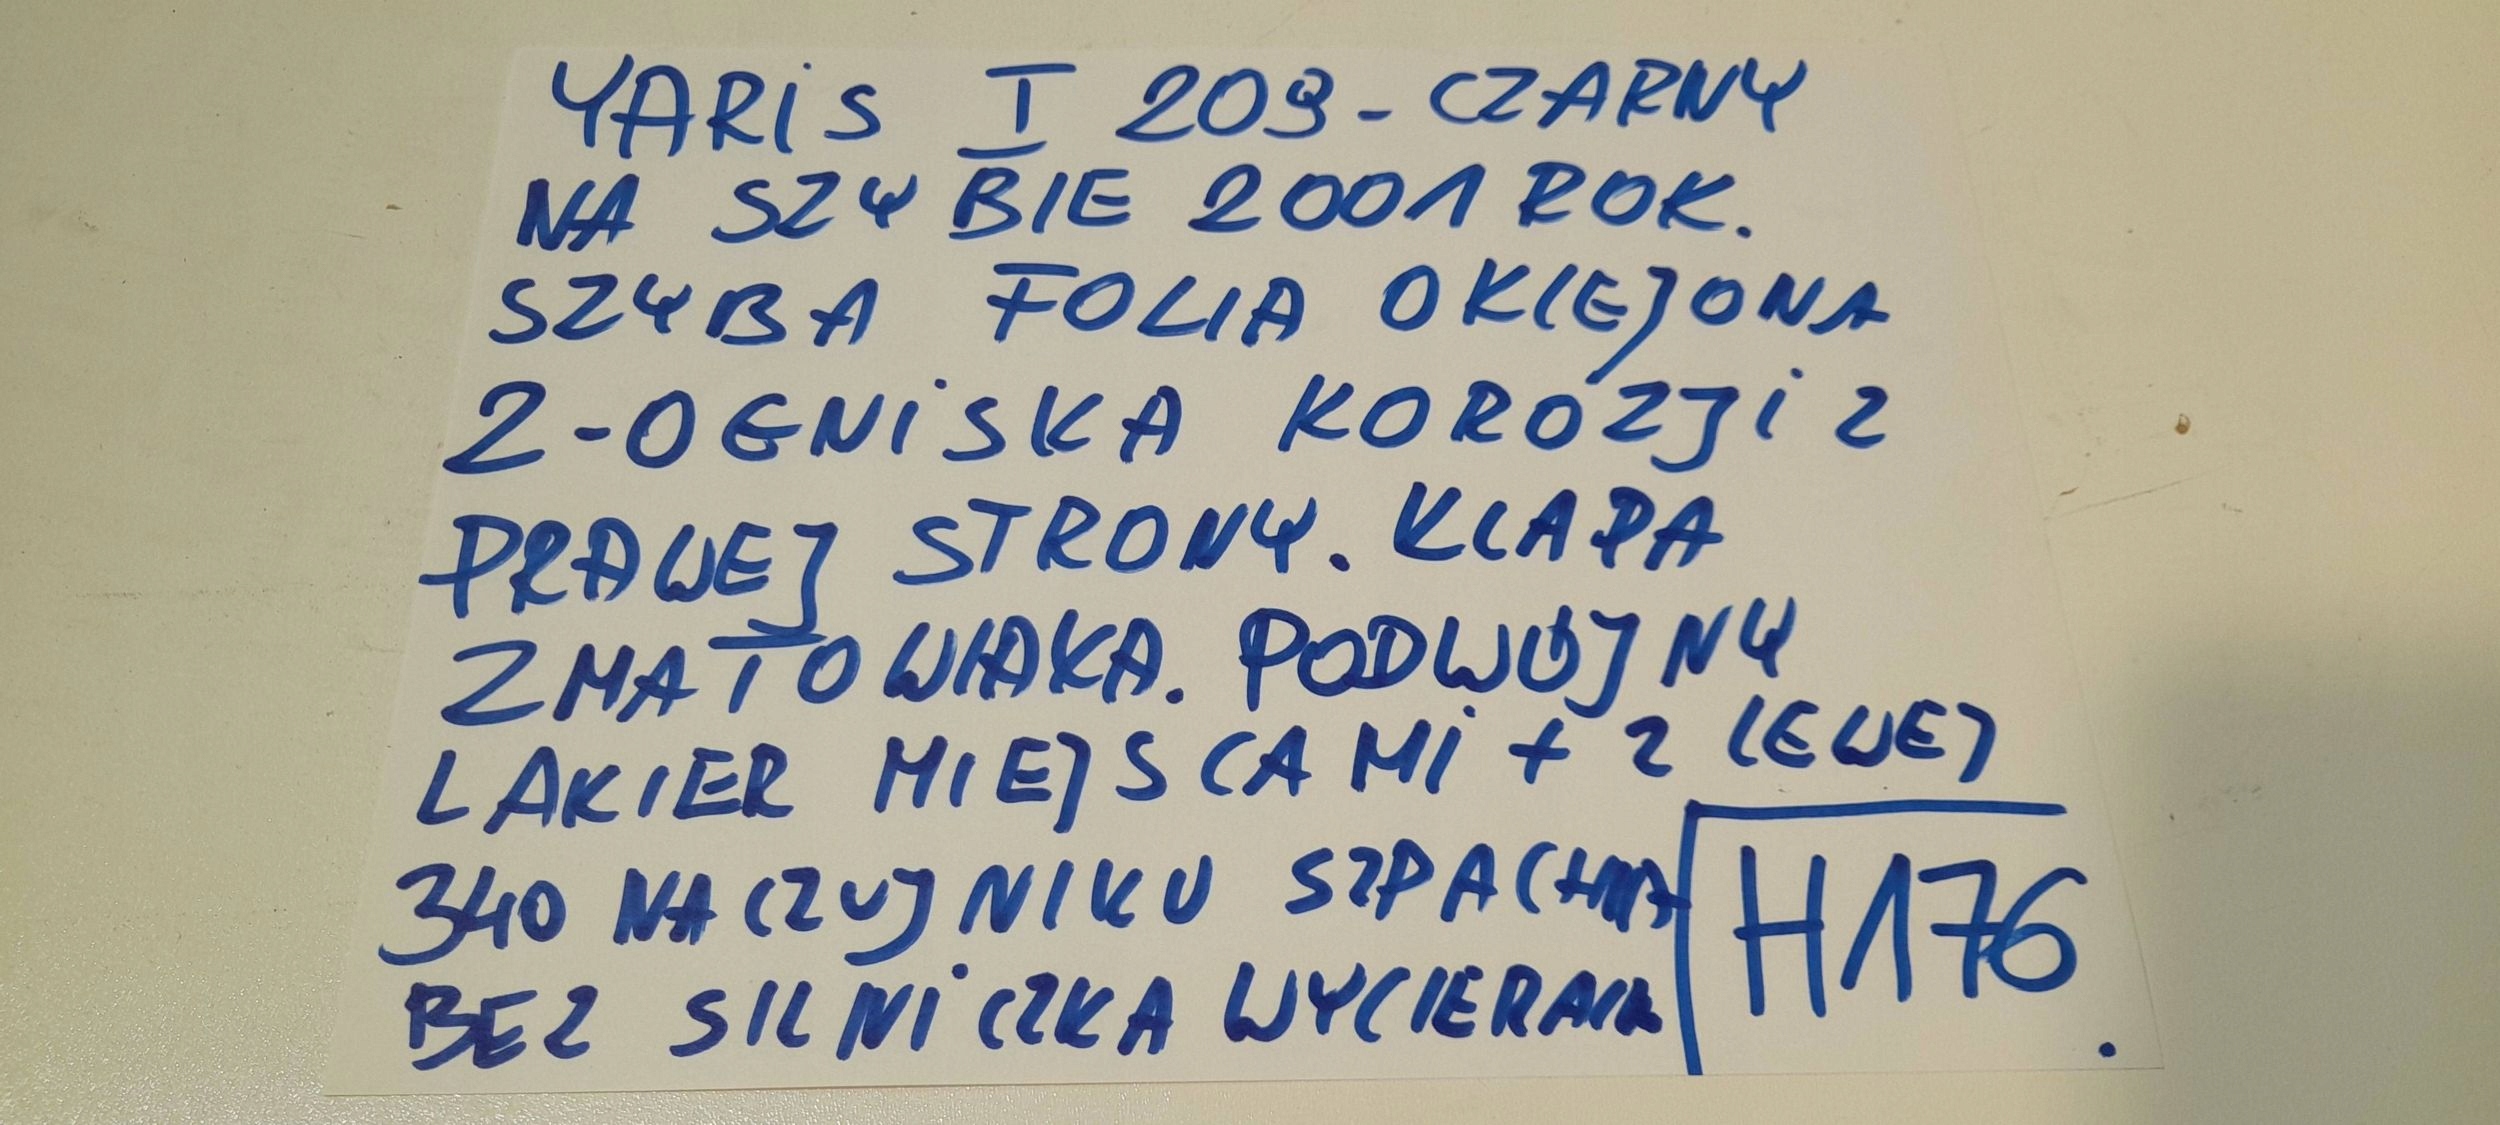 YARIS I 209 - CZARNY
NA SZYBIE 2001 ROK.
SZYBA FOLIA OKLEJONA
2 - OGNISKA KOROZJI Z
PRAWEJ STRONY. KLAPA
ZMATOWIAŁA. PODWÓJNY
LAKIER MIEJSCAMI + Z LEWEJ
340 NA CZUJNIKU SZPACHLA
BEZ SILNICZKA
H176.